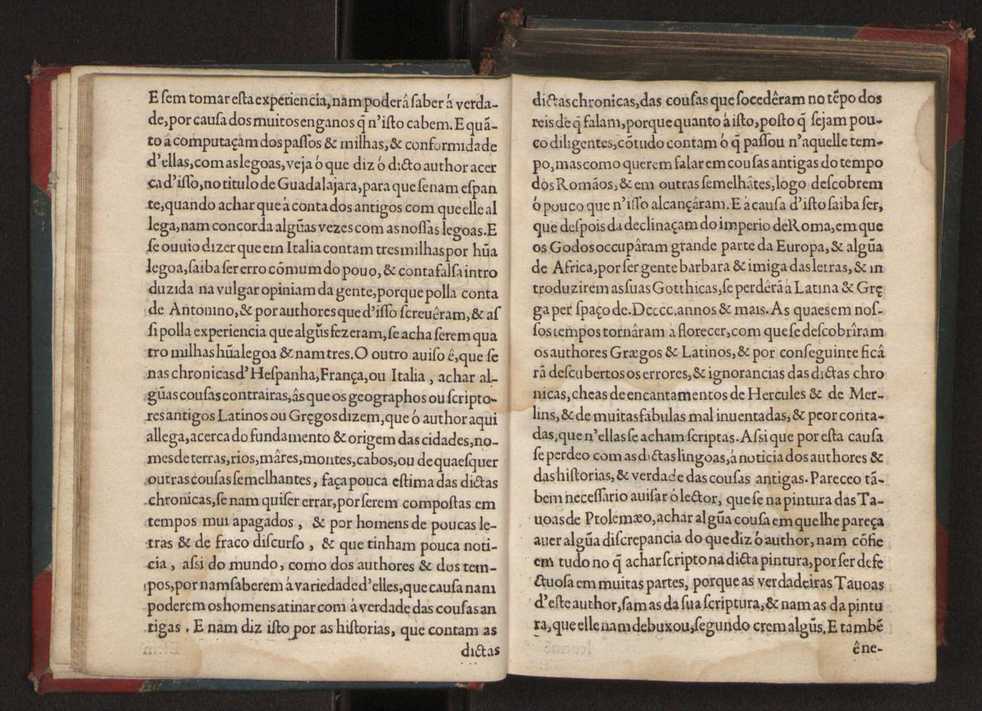 E sem tomar esta experiencia, nam poderá saber á verda-
de, por causa dos muitos enganos q̃ n'isto cabem. E quã-
to á computaçám dos passos & milhas, & conformidade
d'ellas, com as legoas, veja ó que diz ó dicto author acer
ca d'isso, no titulo de Guadalajara, para que se nam espan
te, quando achar que à conta dos antigos com que elle al
lega, nam concorda algũas vezes com as nossas legoas. E
se ouuio dizer que em Italia contam tres milhas por hũa
legoa, saiba ser erro cõmum do pouo, & conta falsa intro
duzida na vulgar opiniam da gente, porque polla conta
de Antonino, & por authores que d'isso screuêram, & as
si polla experiencia que algũs fezeram, se acha serem qua
tro milhas hũa legoa & nam tres. O outro auiso ê, que se
nas chronicas d'Hespanha, França, ou Italia, achar al-
gũas cousas contrairas, âs que os geographos ou scripto-
res antigos Latinos ou Gręgos dizem, que ó author aqui
allega, acerca do fundamento & origem das cidades, no-
mes de terras, rios, mâres, montes, cabos, ou de quaesquer
outras cousas semelhantes, faça pouca estima das dictas
chronicas, se nam quiser errar, por serem compostas em
tempos mui apagados, & por homens de poucas le-
tras & de fraco discurso, & que tinham pouca noti-
cia, assi do mundo, como dos authores & dos tem-
pos, por nam saberem á variedade d'elles, que causa nam
poderem os homens atinar com á verdade das cousas an
tigas. E nam diz isto por as historias, que contam as
dictas
dictas chronicas, das cousas que socedêram no tẽpo dos
reis de q̃ falam, porque quanto à isto, posto q̃ sejam pou-
co diligentes, cõtudo contam ó q̃ passou n'aquelle tem-
po, mas como querem falar em cousas antigas do tempo
dos Romãos, & em outras semelhãtes, logo descobrem
ó pouco que n'isso alcançáram. E á causa d'isto saiba ser,
que despois da declinaçam do imperio de Roma, em que
os Godos occupâram grande parte da Europa, & algũa
de Africa, por ser gente barbara & imiga das letras, & in
troduzirem as suas Gotthicas, se perdêrã à Latina & Gre̜
ga per spaço de. Dcccc. annos & mais. As quaes em nos-
sos tempos tornâram à florecer, com que se descobrîram
os authores Græegos & Latinos, & por conseguinte ficâ
rã descubertos os errores, & ignorancias das dictas chro
nicas, cheas de encantamentos de Hercules & de Mer-
lins, & de muitas fabulas mal inuentadas, & peor conta-
das, que n'ellas se acham scriptas. Assi que por esta causa
se perdeo com as dictas lingoas, á noticia dos authores &
das historias, & verdade das cousas antigas. Pareceo tã-
bem necessario auisar ó lector, que se na pintura das Ta-
uoas de Ptolemæo, achar algũa cousa em que lhe pareça
auer algũa discrepancia do que diz ó author, nam cõfie
em tudo no q̃ achar scripto na dicta pintura, por ser defe
ctuosa em muitas partes, porque as verdadeiras Tauoas
d'este author, sam as da sua scriptura, & nam as da pintu
ra, que elle nam debuxou, segundo crem algũs. E tambẽ
ê ne-